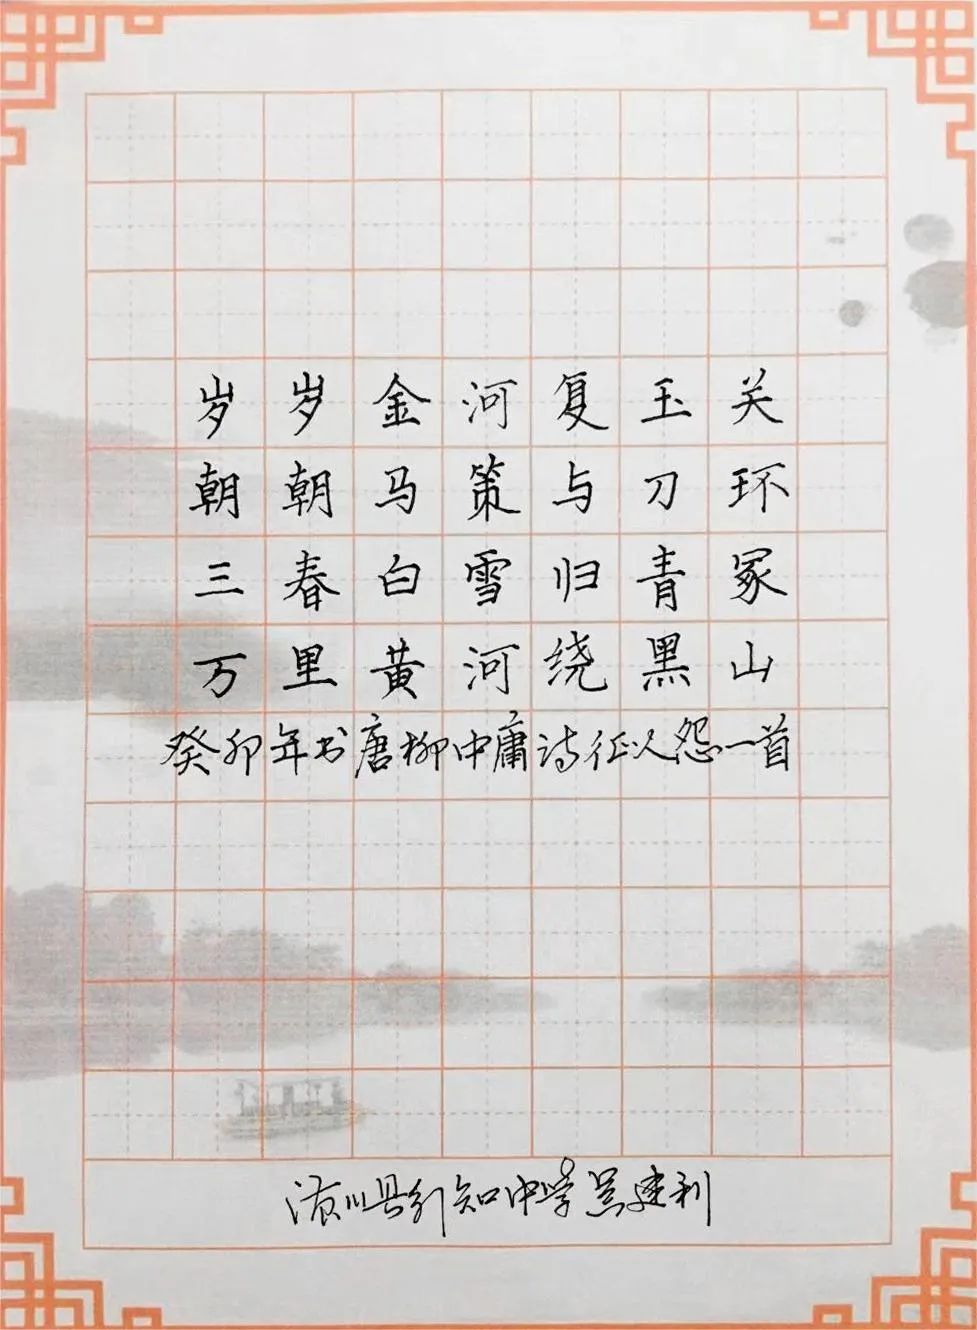 岁岁金河复玉关
朝朝马策与刀环
三春白雪归青冢
万里黄河绕黑山
癸卯年书唐柳中庸诗征人怨一首
潢川县行知中学吴建利